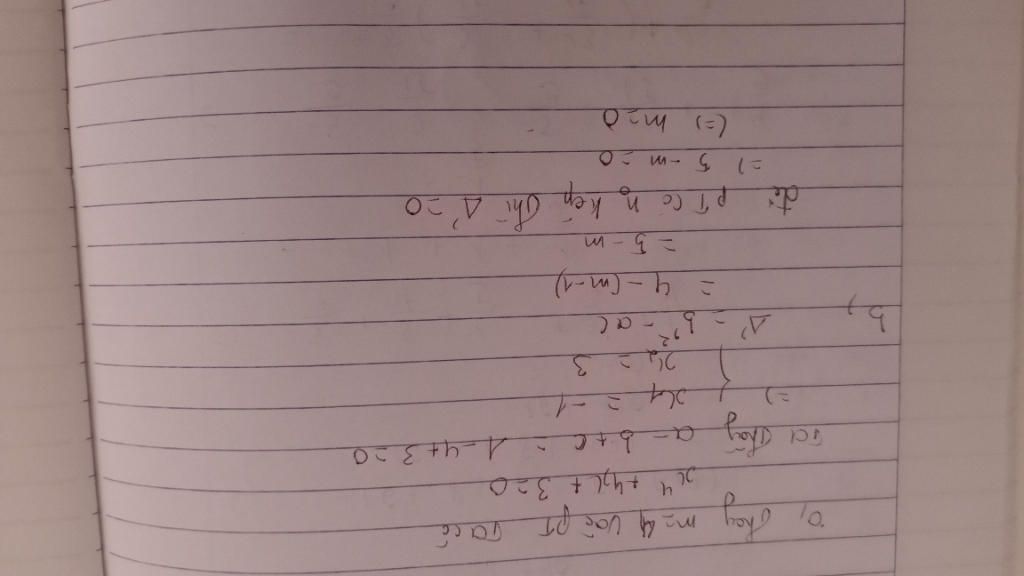 a, thay m=4 vào pt ta có
x⁴ + 4x + 3 = 0
ta thấy a - b + c = 1 - 4 + 3 = 0
=> { x1 = -1
x2 = 3
b, Δ' = b'² - ac
= 4 - (m-1)
= 5 - m
để pt có n⁰ kép thì Δ' = 0
=> 5 - m = 0
(=) m = 0